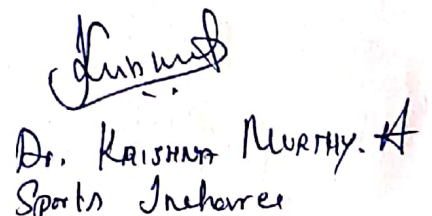 Dr. KRISHNA MURTHY. A
Sports Incharee